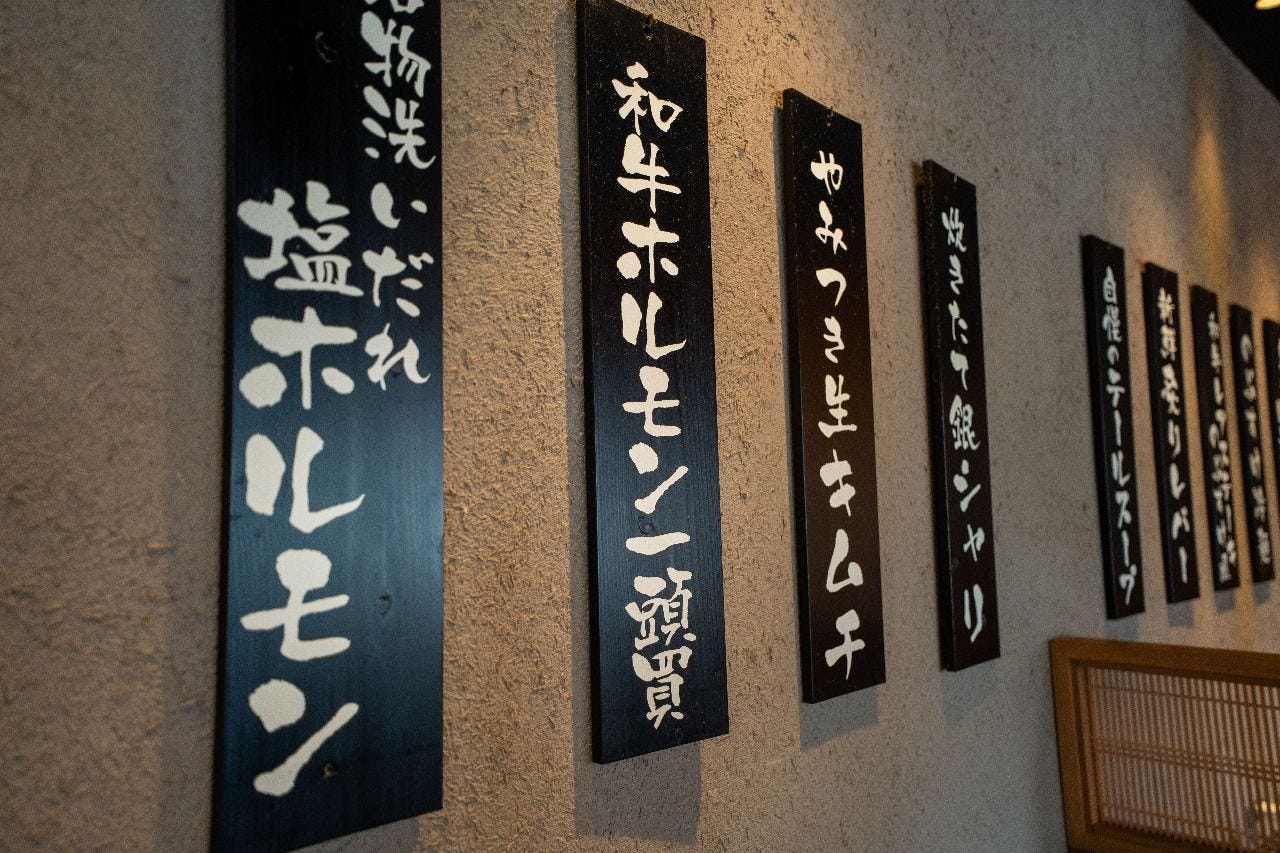 物洗いだれ
塩ホルモン
和牛ホルモン一頭買
やみつき生キムチ
炊きたて銀シャリ
自慢のテールスープ
新鮮炙りレバー